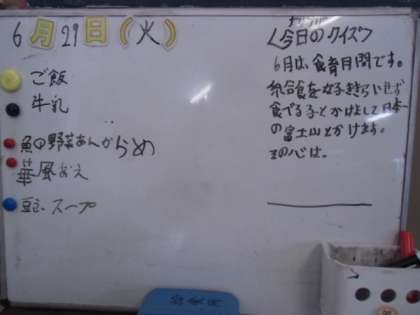 6月29日(火)
ご飯
牛乳
魚の野菜あんからめ
華風あえ
豆 スープ
今日のクイズ
6月は、食育月間です。
給食を好ききらいせず
食べる子とかけまして日本一
の富士山とかけます。
その心は。